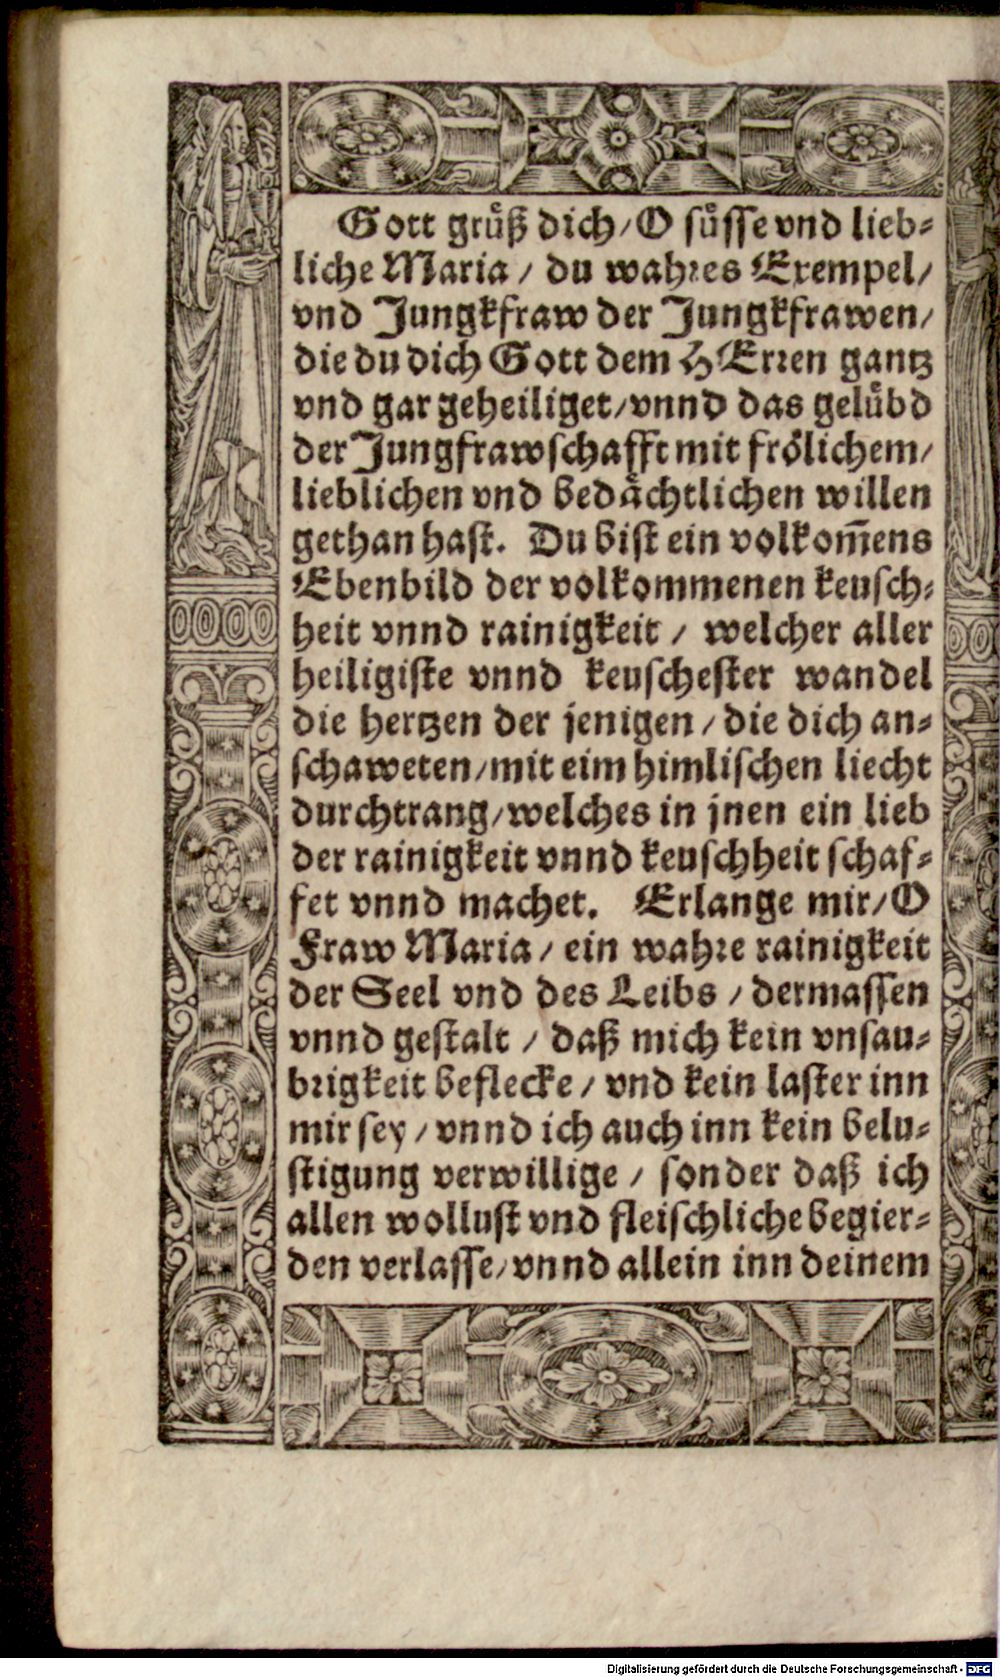 Gott grüß dich/ O süsse vnd lieb-
liche Maria / du wahres Exempel/
vnd Jungkfraw der Jungkfrawen/
die du dich Gott dem HErren gantz
vnd gar geheiliget/ vnnd das gelübd
der Jungfrawschafft mit frölichem/
lieblichen vnd bedächtlichen willen
gethan hast. Du bist ein volkom̃ens
Ebenbild der volkommenen keusch-
heit vnnd rainigkeit / welcher aller
heiligiste vnnd keuschester wandel
die hertzen der jenigen / die dich an-
schaweten/ mit eim himlischen liecht
durchtrang/ welches in jnen ein lieb
der rainigkeit vnnd keuschheit schaf-
fet vnnd machet. Erlange mir/ O
Fraw Maria / ein wahre rainigkeit
der Seel vnd des Leibs / dermassen
vnnd gestalt / daß mich kein vnsau-
brigkeit beflecke / vnd kein laster inn
mir sey / vnnd ich auch inn kein belu-
stigung verwillige / sonder daß ich
allen wollust vnd fleischliche begier-
den verlasse/ vnnd allein inn deinem
Digitalisierung gefördert durch die Deutsche Forschungsgemeinschaft - DFG